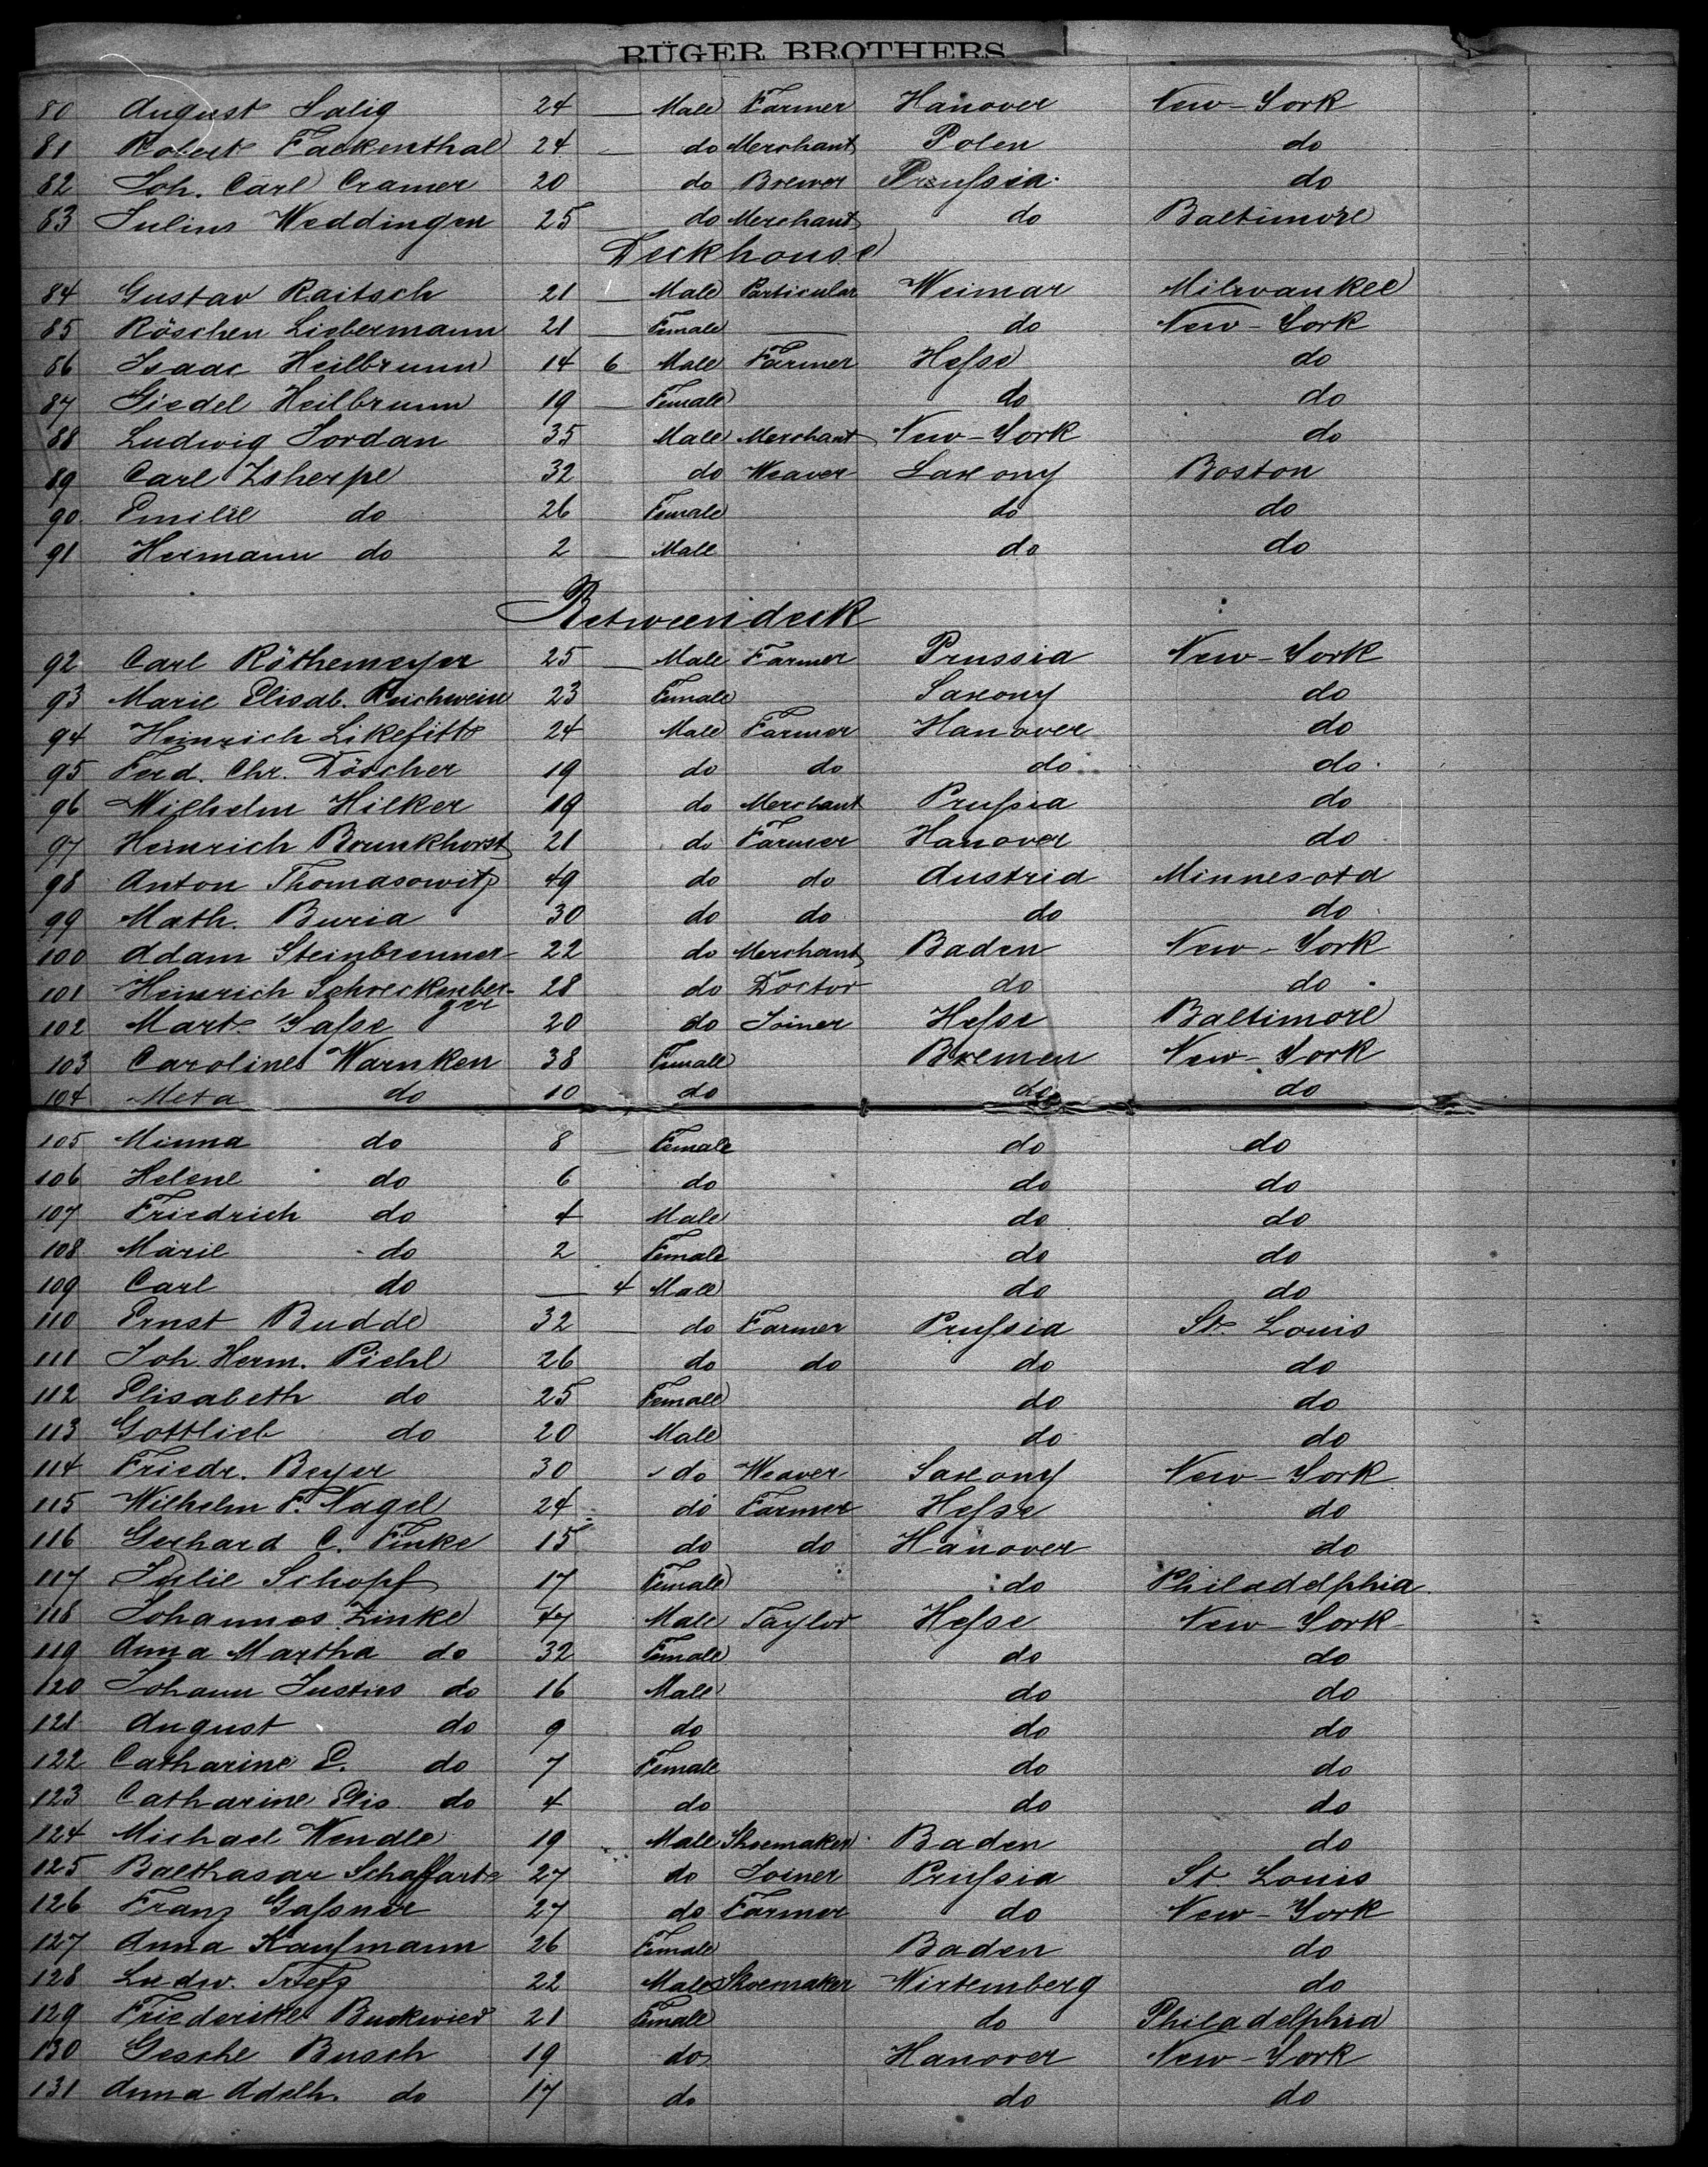 RÜGER BROTHERS
80 August Salig 24 — Male Farmer Hanover New-York
81 Robert Fackenthal 24 — do Merchant Polen do
82 Joh. Carl Cramer 20 do Brewer Prussia do
83 Julius Weddingen 25 — do Merchant do Baltimore
Deckhouse
84 Gustav Raitsch 21 — Male Particular Weimar Milwaukee
85 Röschen Liebermann 21 Female — do New-York
86 Isaac Heilbrunn 14 6 Male Farmer Hesse do
87 Giedel Heilbrunn 19 — Female do do
88 Ludwig Jordan 35 Male Merchant New-York do
89 Carl Zsherpe 32 do Weaver Saxony Boston
90 Emilie do 26 Female do do
91 Hermann do 2 — Male do do
Betweendeck
92 Carl Röthemeyer 25 — Male Farmer Prussia New-York
93 Marie Elisab. Reichwein 23 Female Saxony do
94 Heinrich Likefitt 24 Male Farmer Hanover do
95 Ferd. Chr. Döscher 19 do do do do
96 Wilhelm Hilker 19 do Merchant Prussia do
97 Heinrich Brunkhorst 21 do Farmer Hanover do
98 Anton Thomasowitz 49 do do Austria Minnesota
99 Math. Buria 30 do do do do
100 Adam Steinbrenner 22 do Merchant Baden New-York
101 Heinrich Schreckenber- 28 do Doctor do do
ger
102 Mart. Gasse 20 do Joiner Hesse Baltimore
103 Caroline Warnken 38 Female Bremen New-York
104 Meta do 10 do do do
105 Minna do 8 — Female do do
106 Helene do 6 do do do
107 Friedrich do 4 Male do do
108 Marie do 2 Female do do
109 Carl do — 4 Male do do
110 Ernst Budde 32 — do Farmer Prussia St. Louis
111 Joh. Herm. Piehl 26 do do do do
112 Elisabeth do 25 Female do do
113 Gottlieb do 20 Male do do
114 Friedr. Beyer 30 do Weaver Saxony New-York
115 Wilhelm F. Nagel 24 do Farmer Hesse do
116 Gerhard C. Finke 15 do do Hanover do
117 Julie Schopf 17 Female do Philadelphia
118 Johannes Zinke 47 Male Taylor Hesse New-York
119 Anna Martha do 32 Female do do
120 Johann Justus do 16 Male do do
121 August do 9 do do do
122 Catharine E. do 7 Female do do
123 Catharine Elis. do 4 do do do
124 Michael Wendle 19 Male Shoemaker Baden do
125 Balthasar Schaffart 27 do Joiner Prussia St. Louis
126 Franz Gassner 27 do Farmer do New-York
127 Anna Kaufmann 26 Female Baden do
128 Ludw. Trefz 22 Male Shoemaker Wirtemberg do
129 Friederike 21 Female do Philadelphia
130 Gesche Busch 19 do Hanover New-York
131 Anna Adelh. do 17 do do do